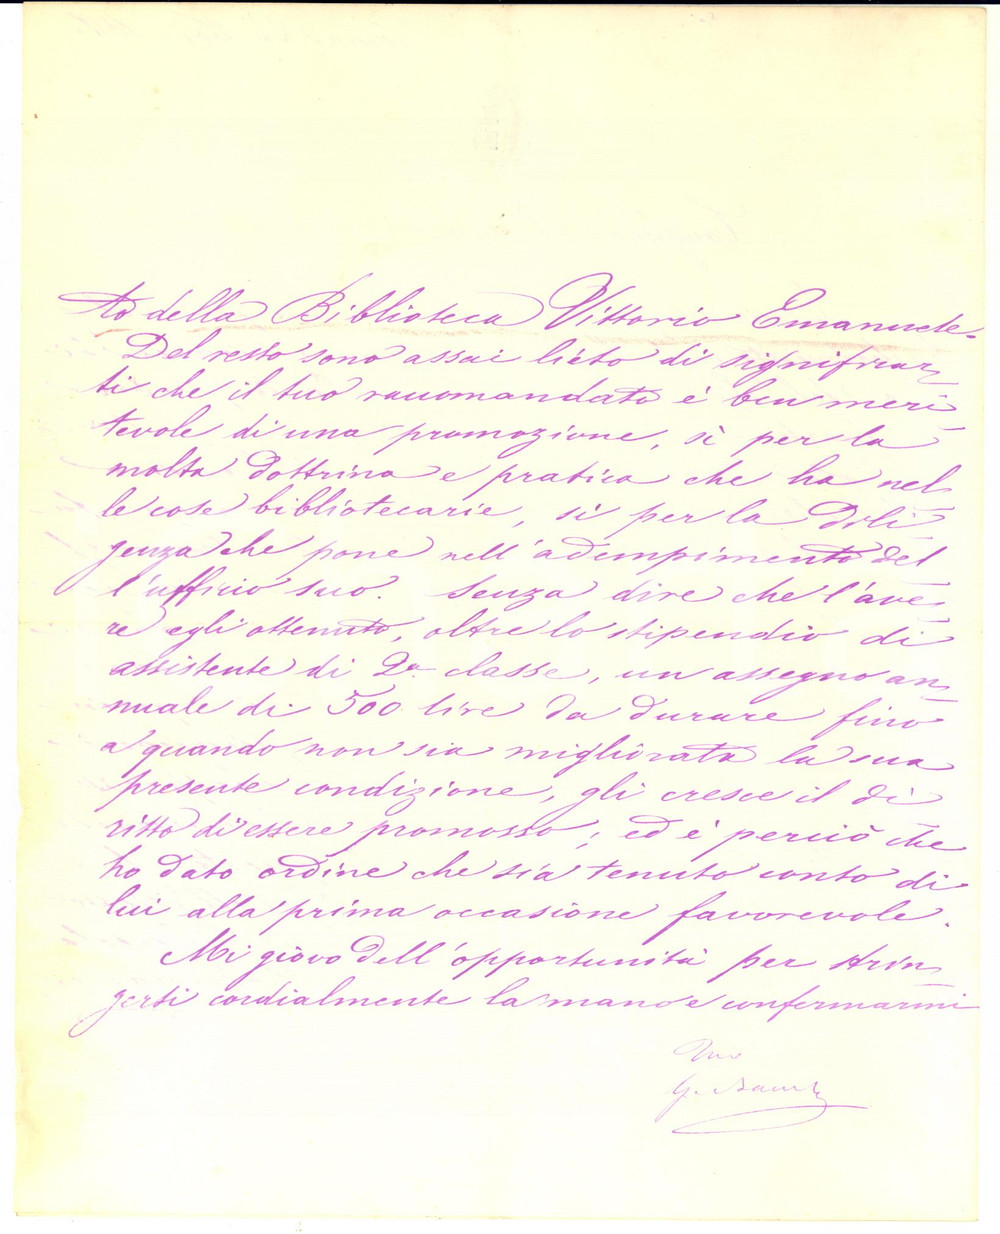 to della Biblioteca Vittorio Emanuele.
Del resto sono assai lieto di significar=
ti che il tuo raccomandato è ben meri=
tevole di una promozione, sì per la
molta dottrina e pratica che ha nel=
le cose bibliotecarie, sì per la dili=
genza che pone nell'adempimento del=
l'ufficio suo. Senza dire che l'ave=
re egli ottenuto, oltre lo stipendio di
assistente di 2a classe, un assegno an=
nuale di 500 lire da durare fino
a quando non sia migliorata la sua
presente condizione, gli cresce il di=
ritto di essere promosso; ed è perciò che
ho dato ordine che sia tenuto conto di
lui alla prima occasione favorevole.
Mi giovo dell'opportunità per strin=
gerti cordialmente la mano e confermarmi
Tuo
G.